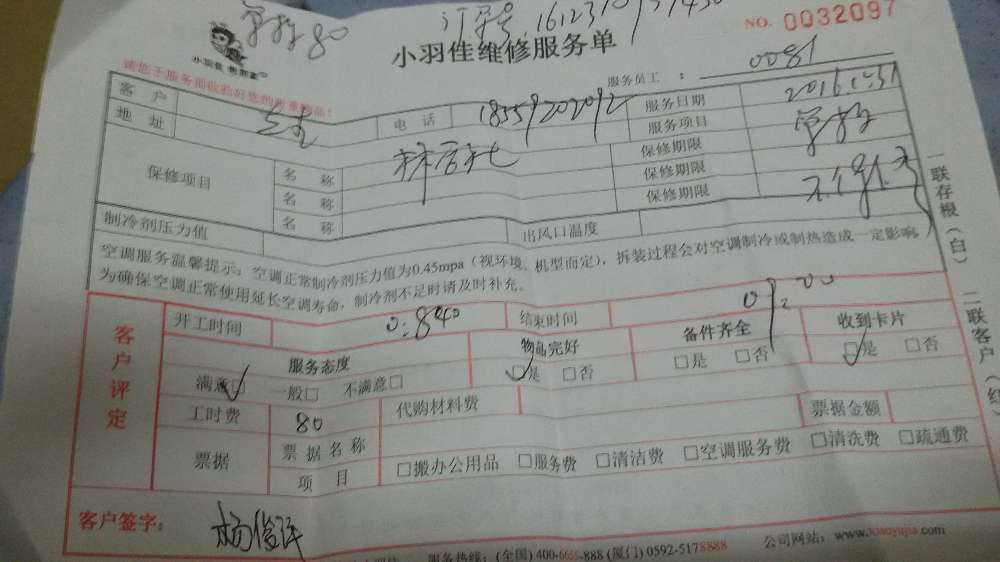 80 订单号:
NO. 0032097
小羽佳维修服务单
请您于服务前收验好您的贵重物品!
服务员工 : 0081
客 户 电 话 18559202092 服务日期 2016.12.31
地 址 服务项目
保修项目 名 称 保修期限
名 称 保修期限
名 称 保修期限
制冷剂压力值 出风口温度
空调服务温馨提示:空调正常制冷剂压力值为0.45mpa(视环境、机型而定),拆装过程会对空调制冷或制热造成一定影响,
为确保空调正常使用延长空调寿命,制冷剂不足时请及时补充。
一联存根(白)
二联客户(红)
客户评定
开工时间 0:840 结束时间
服务态度 物品完好 备件齐全 收到卡片
满意□ 一般□ 不满意□ □是 □否 □是 □否 □是 □否
工时费 80 代购材料费 票据金额
票据 票据名称
项 目 □搬办公用品 □服务费 □清洁费 □空调服务费 □清洗费 □疏通费
客户签字: 杨俊评
服务热线:(全国) 400-6655-888 (厦门) 0592-5178888 公司网站:www.xiaoyujia.com